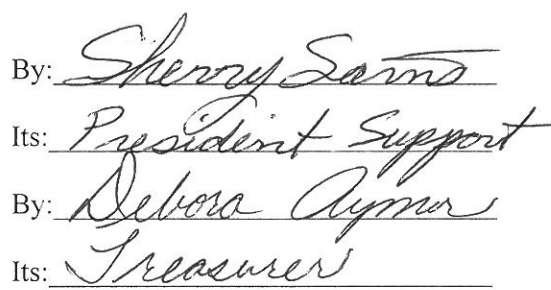 By: Sherry Sams
Its: President Support
By: Debora Aymor
Its: Treasurer